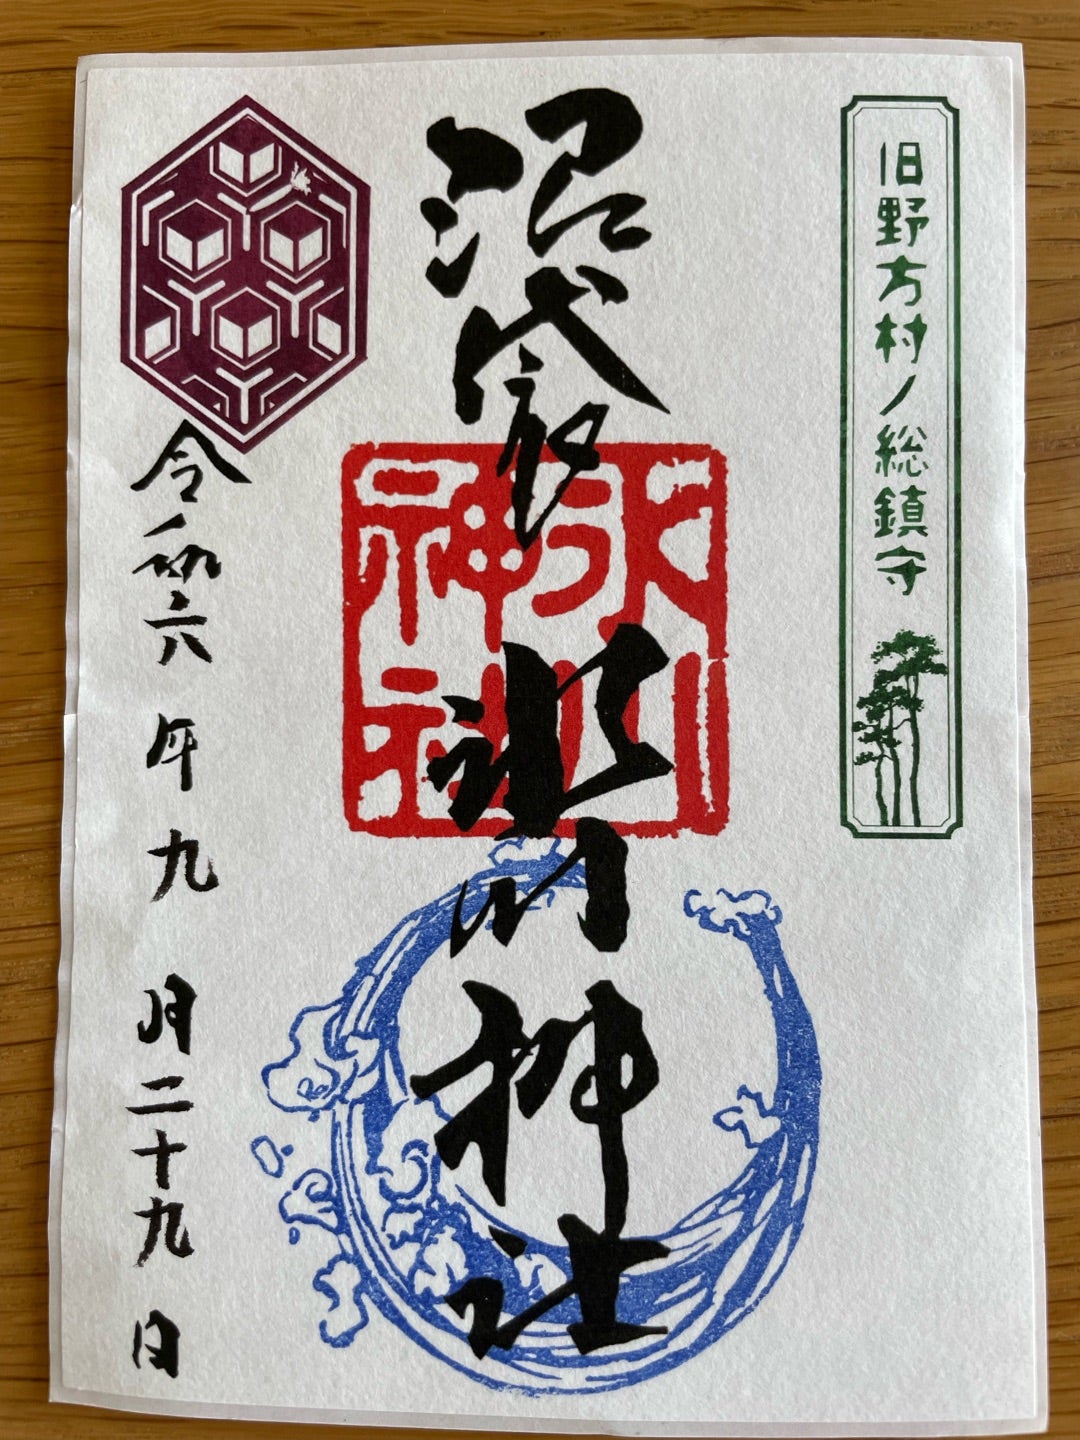 旧野方村ノ総鎮守
沼袋氷川神社
氷川
神社
令和六年九月二十九日